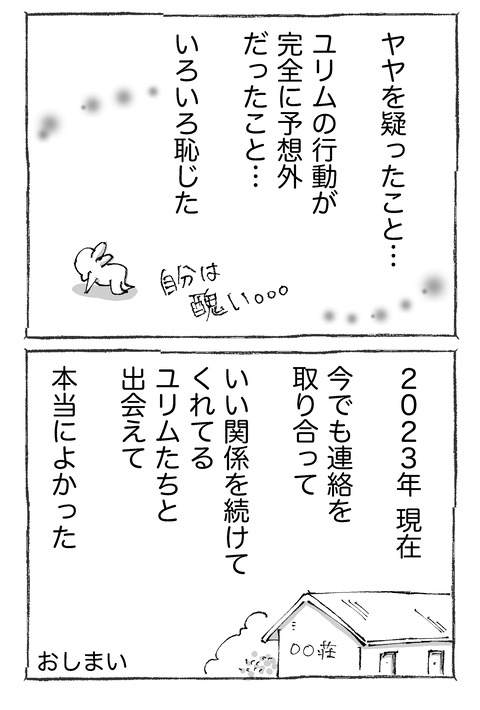 ヤヤを疑ったこと…
ユリムの行動が
完全に予想外
だったこと…
いろいろ恥じた
自分は
醜い。。。
2023年 現在
今でも連絡を
取り合って
いい関係を続けて
くれてる
ユリムたちと
出会えて
本当によかった
〇〇荘
おしまい